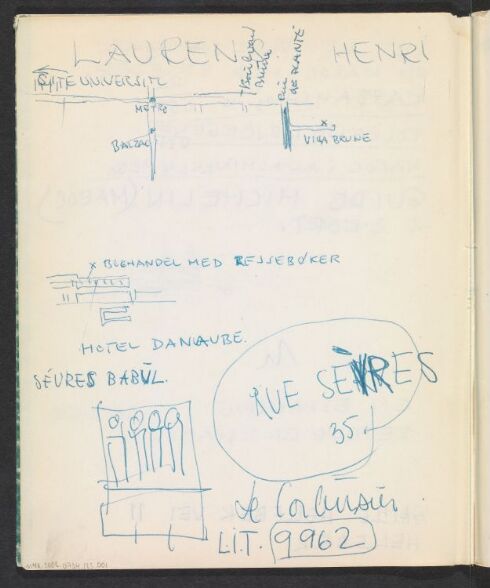 LAUREN HENRI
CITE UNIVERSITE
METRO
Boulevard
Brune
RUE
DES PLANTÉ
BALZAC
VILLA BRUNE
x BOHANDEL MED REISEBØKER
HOTEL DANAUBE.
SÉVRES BABÛL.
RUE SÈVRES
35.
Le Corbusier.
LIT. 9962